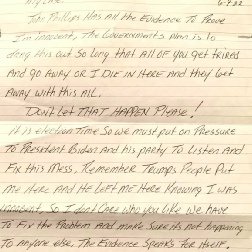 6-4-22
Jim Phillips Has all the Evidence To Prove
I'm innocent, The Government's plan is to
drag this out So long that all of you get tired
And go away or I DIE IN HERE and they get
Away with this ALL.
Don't Let THAT HAPPEN Please!
It is election Time So we must put on Pressure
To President Biden And his party To Listen And
Fix this Mess. Remember Trumps People Put
Me Here And He Left me Here Knowing I was
innocent, So I don't Care who you like we have
To Fix the Problem And make Sure its not happening
To Anyone else. The Evidence Speaks For itself,